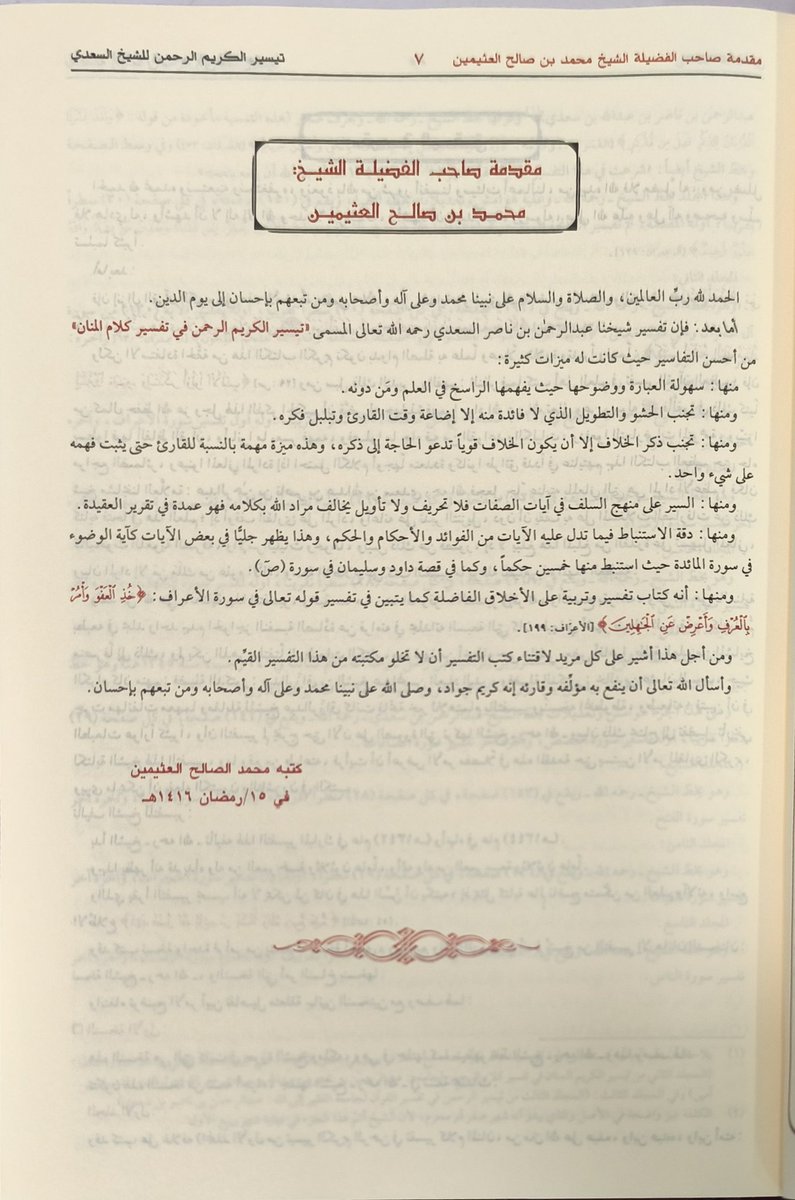 مقدمة صاحب الفضيلة الشيخ محمد بن صالح العثيمين ٧ تيسير الكريم الرحمن للشيخ السعدي
مقدمة صاحب الفضيلة الشيخ:
محمد بن صالح العثيمين
الحمد لله ربِّ العالمين، والصلاة والسلام على نبينا محمد وعلى آله وأصحابه ومن تبعهم بإحسان إلى يوم الدين.
أما بعد: فإن تفسير شيخنا عبدالرحمٰن بن ناصر السعدي رحمه الله تعالى المسمى «تيسير الكريم الرحمن في تفسير كلام المنان»
من أحسن التفاسير حيث كانت له ميزات كثيرة:
منها: سهولة العبارة ووضوحها حيث يفهمها الراسخ في العلم ومَن دونه.
ومنها: تجنب الحشو والتطويل الذي لا فائدة منه إلا إضاعة وقت القارئ وتبلبل فكره.
ومنها: تجنب ذكر الخلاف إلا أن يكون الخلاف قوياً تدعو الحاجة إلى ذكره، وهذه ميزة مهمة بالنسبة للقارئ حتى يثبت فهمه
على شيء واحد.
ومنها: السير على منهج السلف في آيات الصفات فلا تحريف ولا تأويل يخالف مراد الله بكلامه فهو عمدة في تقرير العقيدة.
ومنها: دقة الاستنباط فيما تدل عليه الآيات من الفوائد والأحكام والحكم، وهذا يظهر جليًّا في بعض الآيات كآية الوضوء
في سورة المائدة حيث استنبط منها خمسين حكماً، وكما في قصة داود وسليمان في سورة (صّ).
ومنها: أنه كتاب تفسير وتربية على الأخلاق الفاضلة كما يتبين في تفسير قوله تعالى في سورة الأعراف: ﴿خُذِ ٱلْعَفْوَ وَأْمُرْ
بِٱلْعُرْفِ وَأَعْرِضْ عَنِ ٱلْجَٰهِلِينَ﴾ [الأعراف: ١٩٩].
ومن أجل هذا أشير على كل مريد لاقتناء كتب التفسير أن لا تخلو مكتبته من هذا التفسير القيِّم.
وأسأل الله تعالى أن ينفع به مؤلِّفه وقارئه إنه كريم جواد، وصلى الله على نبينا محمد وعلى آله وأصحابه ومن تبعهم بإحسان.
كتبه محمد الصالح العثيمين
في ١٥/رمضان ١٤١٦هـ